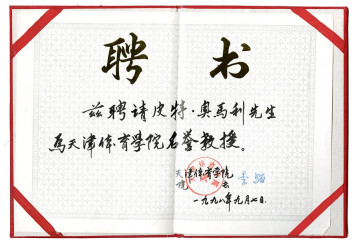 聘书
兹聘请皮特·奥马利先生
為天津体育学院名誉教授。
天津体育学院
院长
一九九八年九月七日